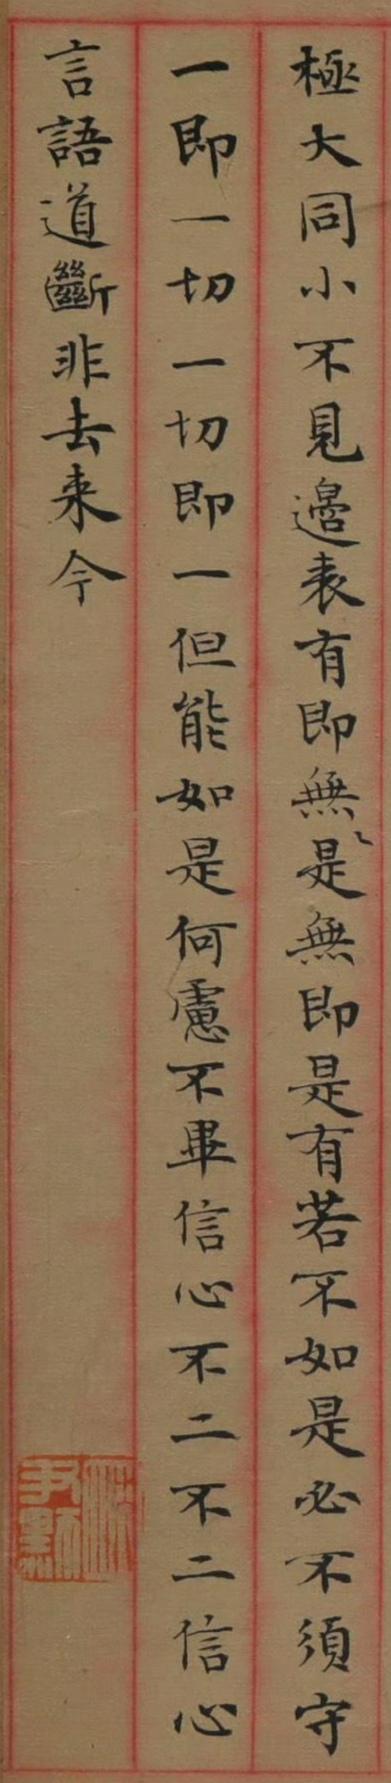 極大同小不見邊表有即無是無即是有若不如是必不須守
一即一切一切即一但能如是何慮不畢信心不二不二信心
言語道斷非去来今
沈尹默